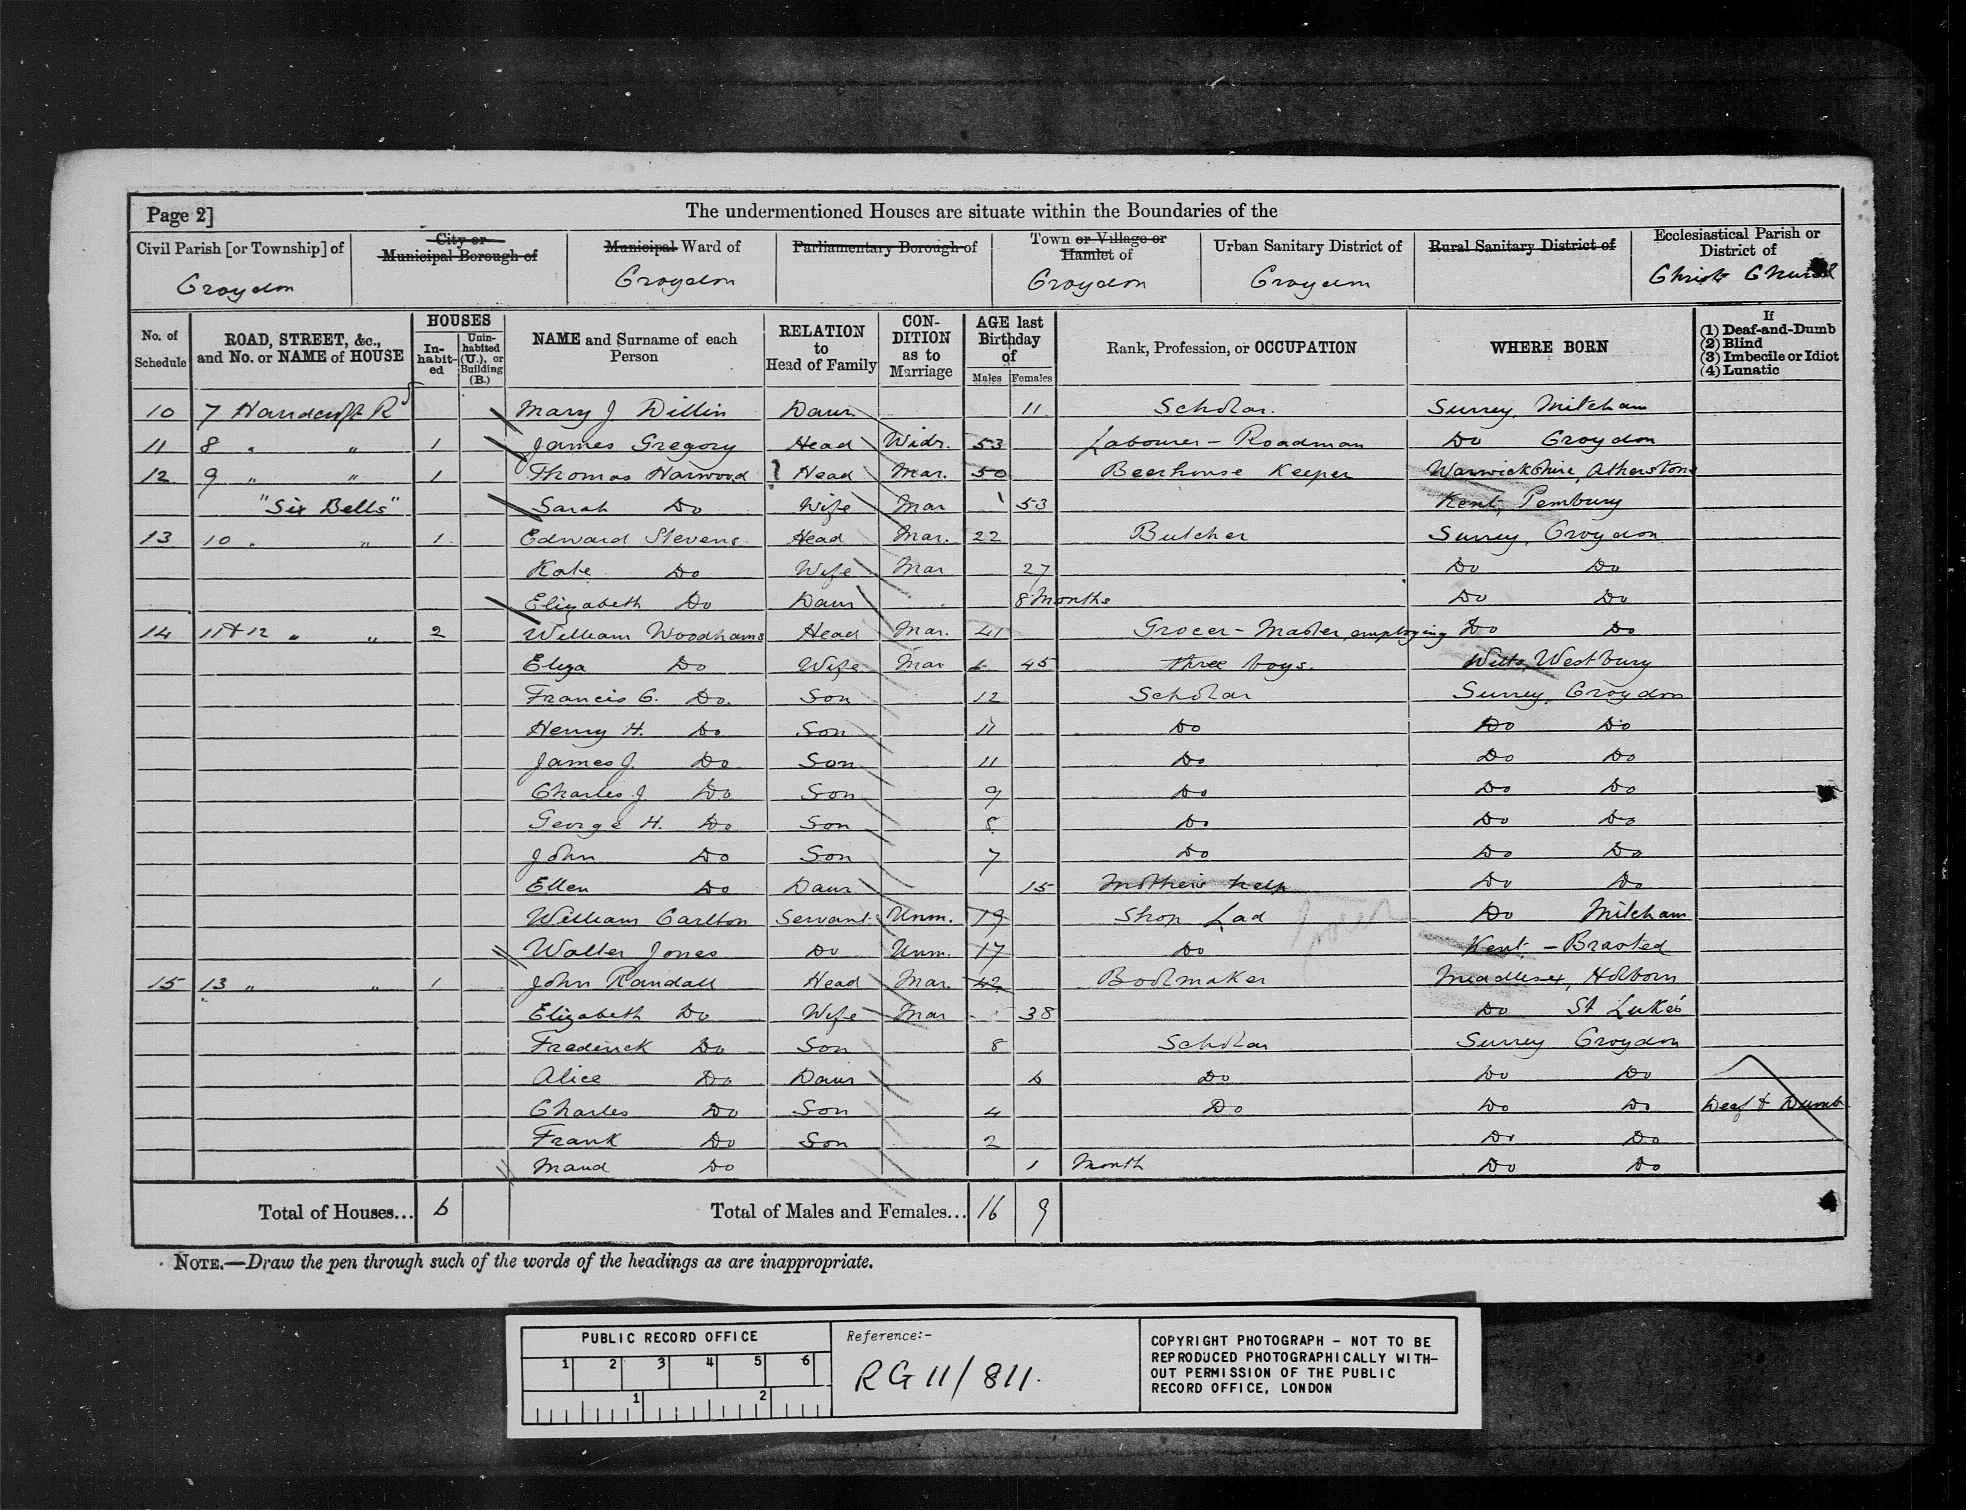 Page 2]
The undermentioned Houses are situate within the Boundaries of the
Civil Parish [or Township] of
City or Municipal Borough of
Municipal Ward of
Parliamentary Borough of
Town or Village or Hamlet of
Urban Sanitary District of
Rural Sanitary District of
Ecclesiastical Parish or District of
Croydon Croydon Croydon Croydon Christ Church
No. of Schedule
ROAD, STREET, &c., and No. or NAME of HOUSE
HOUSES
Inhabited
Uninhabited (U.), or Building (B.)
NAME and Surname of each Person
RELATION to Head of Family
CONDITION as to Marriage
AGE last Birthday of
Males Females
Rank, Profession, or OCCUPATION
WHERE BORN
If
(1) Deaf-and-Dumb
(2) Blind
(3) Imbecile or Idiot
(4) Lunatic
10 7 Handcroft Rd Mary J Dillin Daur 11 Scholar. Surrey, Mitcham
11 8 " " 1 James Gregory Head Widr. 53 Labourer - Roadman Do Croydon
12 9 " " 1 Thomas Harwood ? Head Mar. 50 Beerhouse Keeper Warwickshire, Atherstone
"Six Bells" Sarah Do Wife Mar 53 Kent, Pembury
13 10 " " 1 Edward Stevens Head Mar. 22 Butcher Surrey, Croydon
Kate Do Wife Mar 27 Do Do
Elizabeth Do Daur 8 Months Do Do
14 11 & 12 " " 2 William Woodhams Head Mar. 41 Grocer - Master, employing Do Do
Eliza Do Wife Mar 45 three boys. Wilts, Westbury
Francis G. Do. Son 12 Scholar Surrey, Croydon
Henry H. Do Son 11 Do Do Do
James J. Do Son 11 Do Do Do
Charles J. Do Son 9 Do Do Do
George H. Do Son 8 Do Do Do
John Do Son 7 Do Do Do
Ellen Do Daur 15 Mothers help Do Do
William Carlton Servant Unm. 19 Shop Lad Do Mitcham
Walter Jones Do Unm. 17 Do Kent - Brasted
15 13 " " 1 John Randall Head Mar. 42 Bootmaker Middlesex, Holborn
Elizabeth Do Wife Mar 38 Do St Luke's
Frederick Do Son 8 Scholar Surrey Croydon
Alice Do Daur 6 Do Do Do
Charles Do Son 4 Do Do Do Deaf & Dumb
Frank Do Son 2 Do Do
Maud Do 1 Month Do Do
Total of Houses... 6 Total of Males and Females... 16 9
NOTE.—Draw the pen through such of the words of the headings as are inappropriate.
PUBLIC RECORD OFFICE
1 2 3 4 5 6
1 2
Reference:-
RG 11/811.
COPYRIGHT PHOTOGRAPH - NOT TO BE
REPRODUCED PHOTOGRAPHICALLY WITH-
OUT PERMISSION OF THE PUBLIC
RECORD OFFICE, LONDON